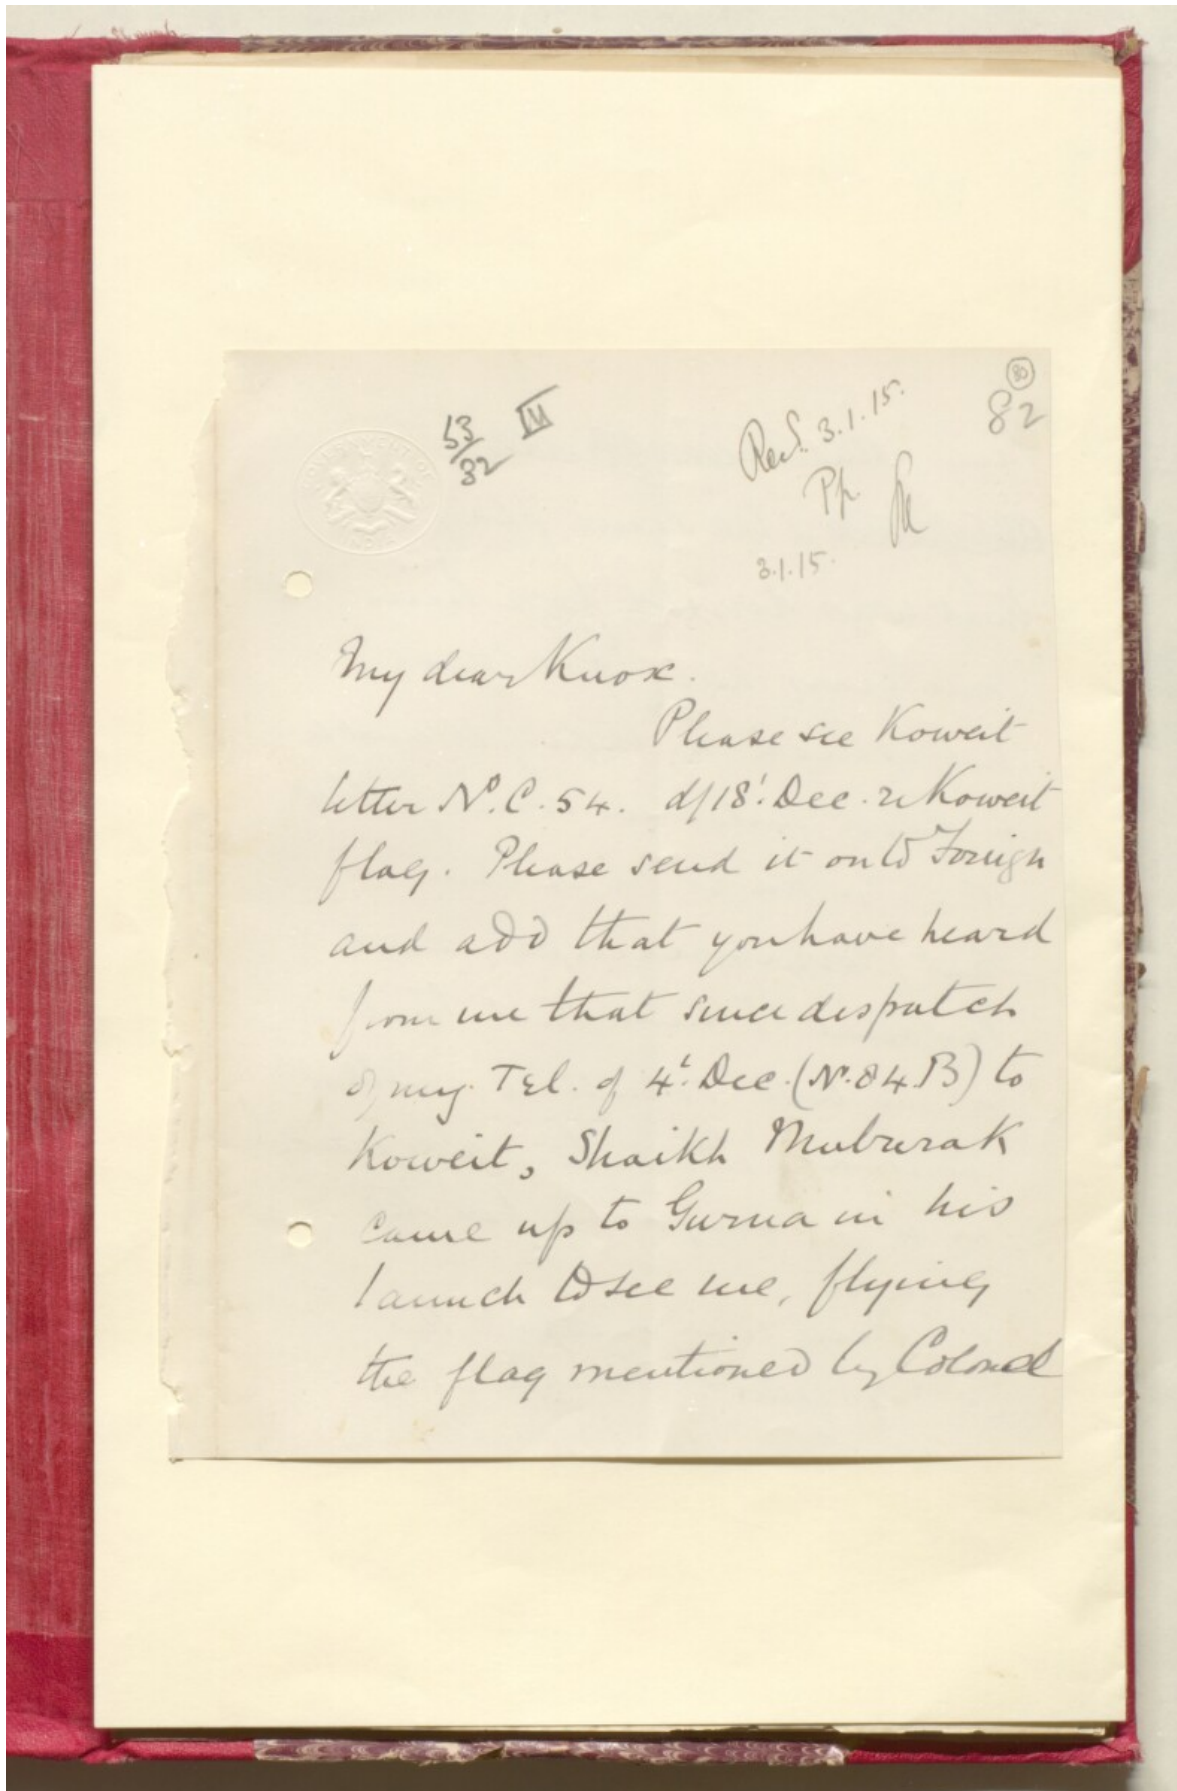 53/82 IV
Recd. 3.1.15.
Pp.
3.1.15.
80
82
My dear Knox.
Please see Koweit
letter No. C. 54. d/18' Dec. re Koweit
flag. Please send it on to Foreign
and add that you have heard
from me that since despatch
of my Tel. of 4' Dec. (No. 84.B) to
Koweit, Shaikh Mubarak
came up to Gurna in his
launch to see me, flying
the flag mentioned by Colonel